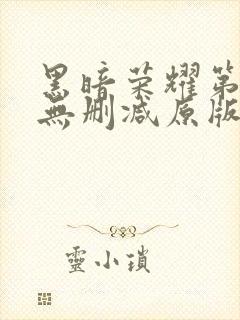 黑暗荣耀第
無删减原版
靈小瑣